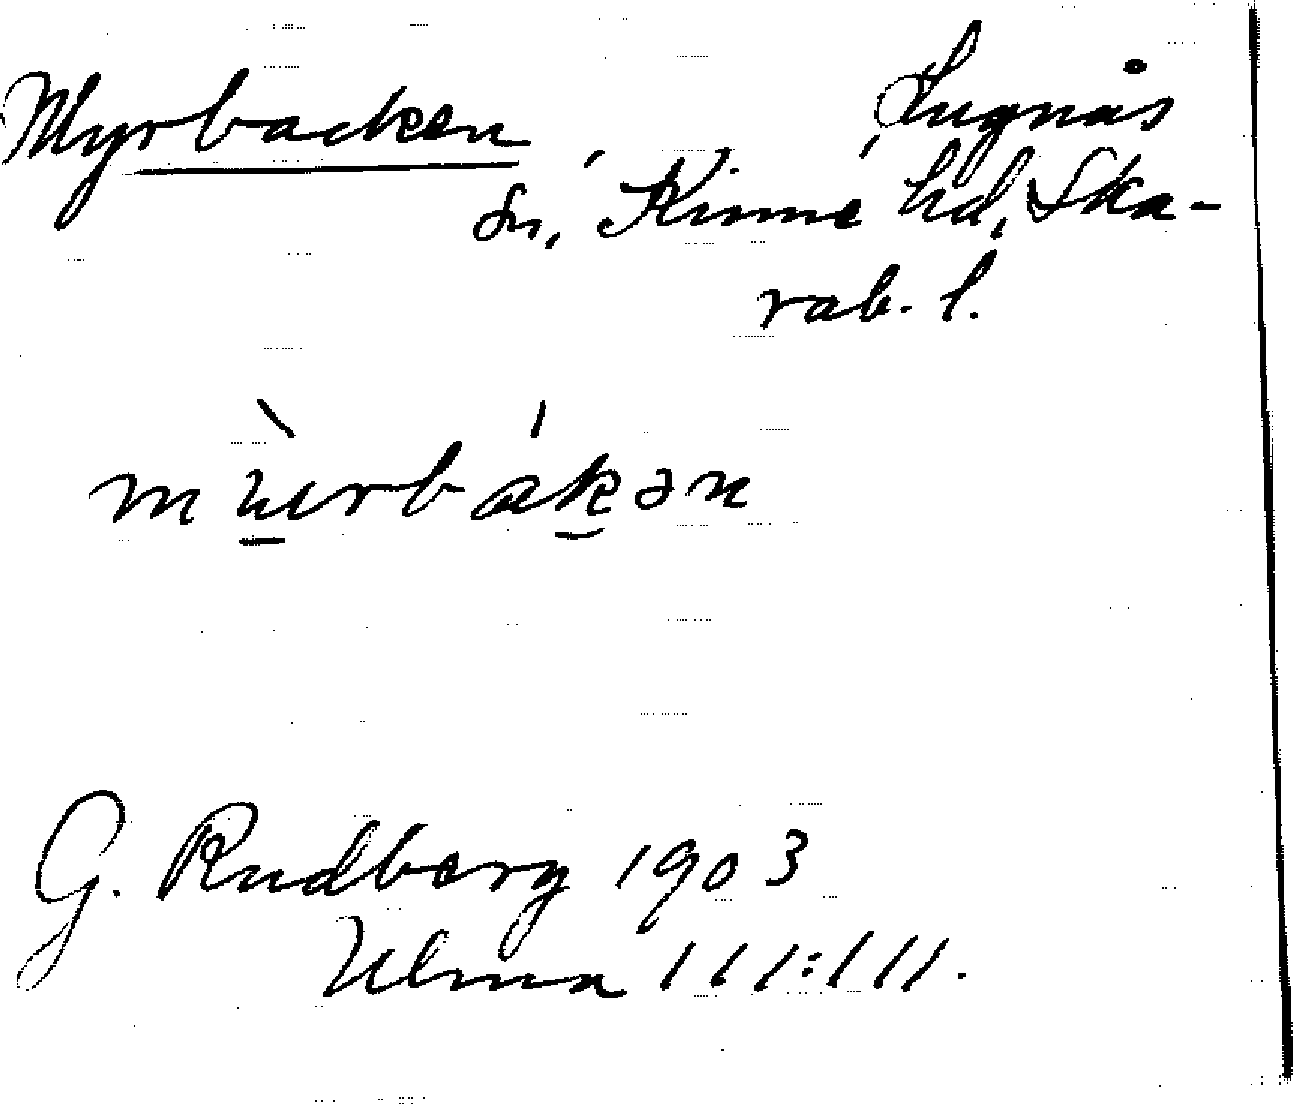 Myrbacken Lugnås
sn, Kinne hd, Ska-
rab. l.
G. Rudberg 1903
Ulma 111:111.